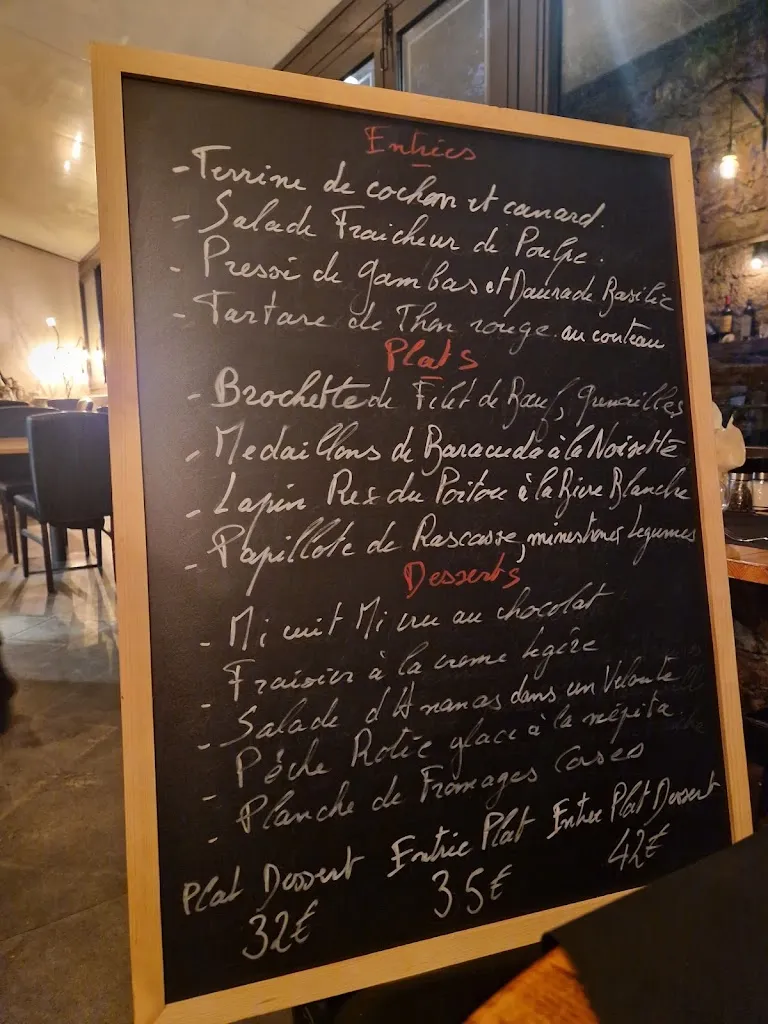 Entrées
- Terrine de cochon et canard.
- Salade Fraicheur de Poulpe.
- Pressé de gambas et Daurade Basilic
- Tartare de Thon rouge au couteau
Plats
- Brochette de Filet de Bœuf, Grenailles
- Medaillons de Baracuda à la Noisette
- Lapin Rex du Poitou à la Biere Blanche
- Papillote de Rascasse, minestrone legumes
Desserts
- Mi cuit Mi cru au chocolat
- Fraisier à la creme legère
- Salade d'Ananas dans un Velouté
- Pêche Rotie glace à la népita
- Planche de Fromages Corses
Plat Dessert Entrée Plat Entrée Plat Dessert
32€ 35€ 42€